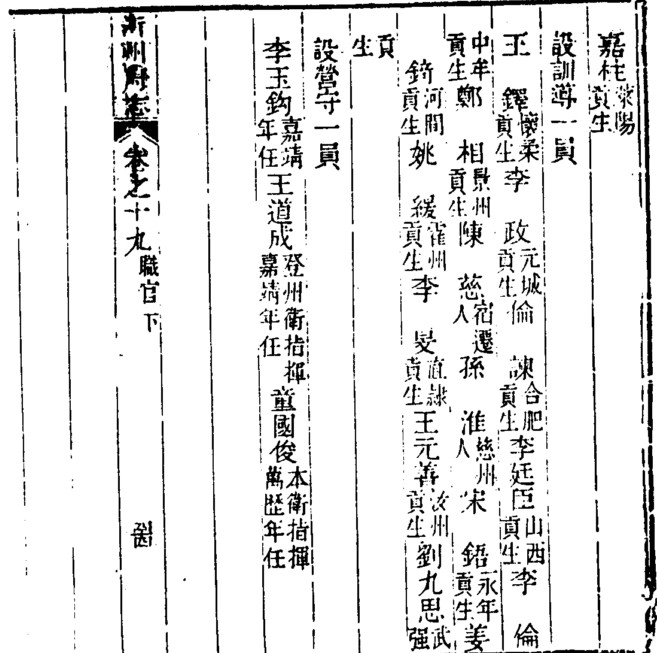 嘉柱滎陽貢生
設訓導一員
王鐸懷柔貢生李政元城貢生倫諫合肥貢生李廷臣山西貢生李倫
中牟貢生鄭相景州貢生陳慈宿遷人孫淮慈州人宋鋙永年貢生姜
錡河間貢生姚緩霍州貢生李旻直隸貢生王元善汝州貢生劉九思武强
貢生
設營守一員
李玉鈎嘉靖年任王道成登州衛指揮嘉靖年任童國俊本衛指揮萬歷年任
沂州府志卷之十九職官下